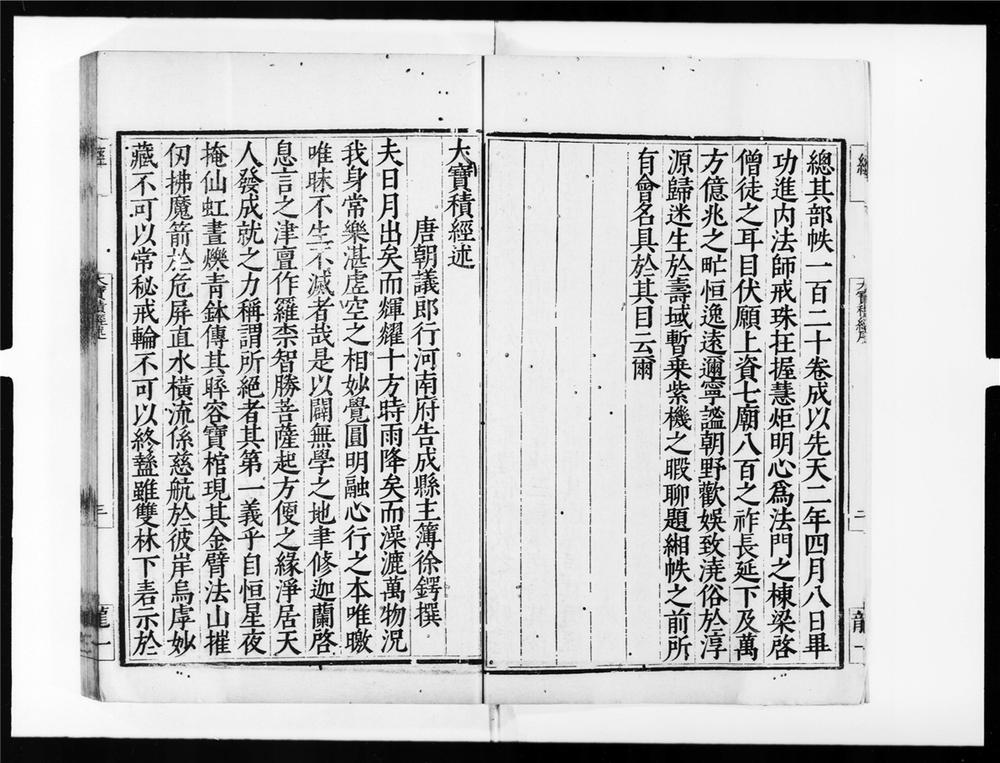 總其部帙一百二十卷成以先天二年四月八日畢
功進内法師戒珠在握慧炬明心爲法門之棟梁啓
僧徒之耳目伏願上資七廟八百之祚長延下及萬
方億兆之甿恒逸遠邇寧謐朝野歡娛致澆俗於淳
源歸迷生於壽域暫乗紫機之暇聊題緗帙之前所
有會名具於其目云爾
大寶積經述
唐朝議郎行河南府告成縣主簿徐鍔撰
夫日月出矣而輝耀十方時雨降矣而澡漉萬物況
我身常樂湛虛空之相妙覺圓明融心行之本唯曒
唯昧不生不滅者哉是以闢無學之地聿修迦蘭啓
息言之津亶作羅柰智勝菩薩起方便之緣淨居天
人發成就之力稱謂所絕者其第一義乎自恒星夜
掩仙虹晝爍青鉢傳其睟容寶棺現其金臂法山摧
仞拂魔箭於危屏直水橫流係慈航於彼岸烏虖妙
藏不可以常秘戒輪不可以終蠚雖雙林下㳟示於
大寶積經序
二
龍一
大寶積經述
三
龍一